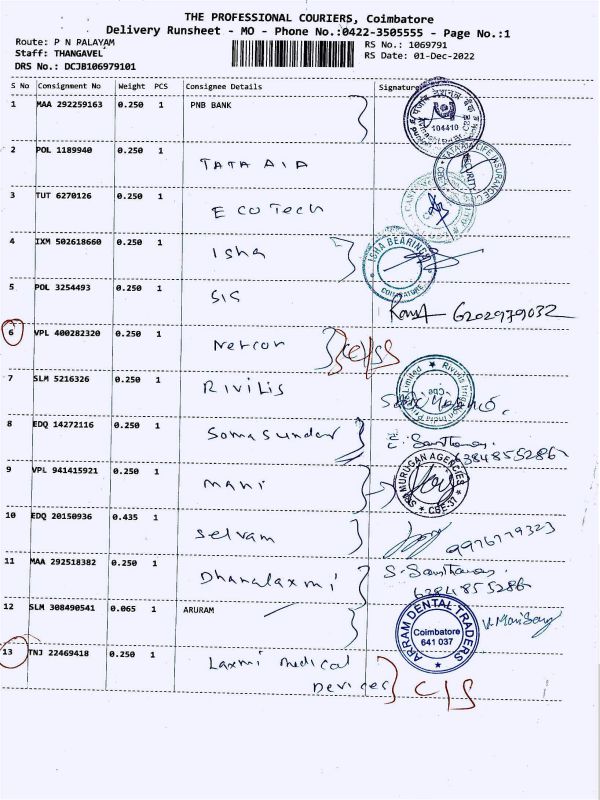 THE PROFESSIONAL COURIERS, Coimbatore
Delivery Runsheet - MO - Phone No.:0422-3505555 - Page No.:1
Route: P N PALAYAM
RS No.: 1069791
Staff: THANGAVEL
RS Date: 01-Dec-2022
DRS No.: DCJB106979101
S No Consignment No Weight PCS Consignee Details Signature
1 MAA 292259163 0.250 1 PNB BANK
104410
2 POL 1189940 0.250 1 TATA AIA
LIFE INSURANCE
SECURITY
3 TUT 6270126 0.250 1 ECOTech
4 IXM 502618660 0.250 1 Isha
ISHA BEARINGS
COIMBATORE
5 POL 3254493 0.250 1 SIS
6202979032
6 VPL 400282320 0.250 1 Netcon
7 SLM 5216326 0.250 1 RIVILIS
Rivulis Irrigation India Private Limited
Cbe
8 EDQ 14272116 0.250 1 Somasunder
6384855286
9 VPL 941415921 0.250 1 Mani
MURUGAN AGENCIES
CBE-37
10 EDQ 20150936 0.435 1 Selvam
9976779323
11 MAA 292518382 0.250 1 Dhanalaxmi
6384855286
12 SLM 308490541 0.065 1 ARURAM
ARRAM DENTAL TRADERS
Coimbatore
641 037
13 TNJ 22469418 0.250 1 Laxmi medical
Devices C/S